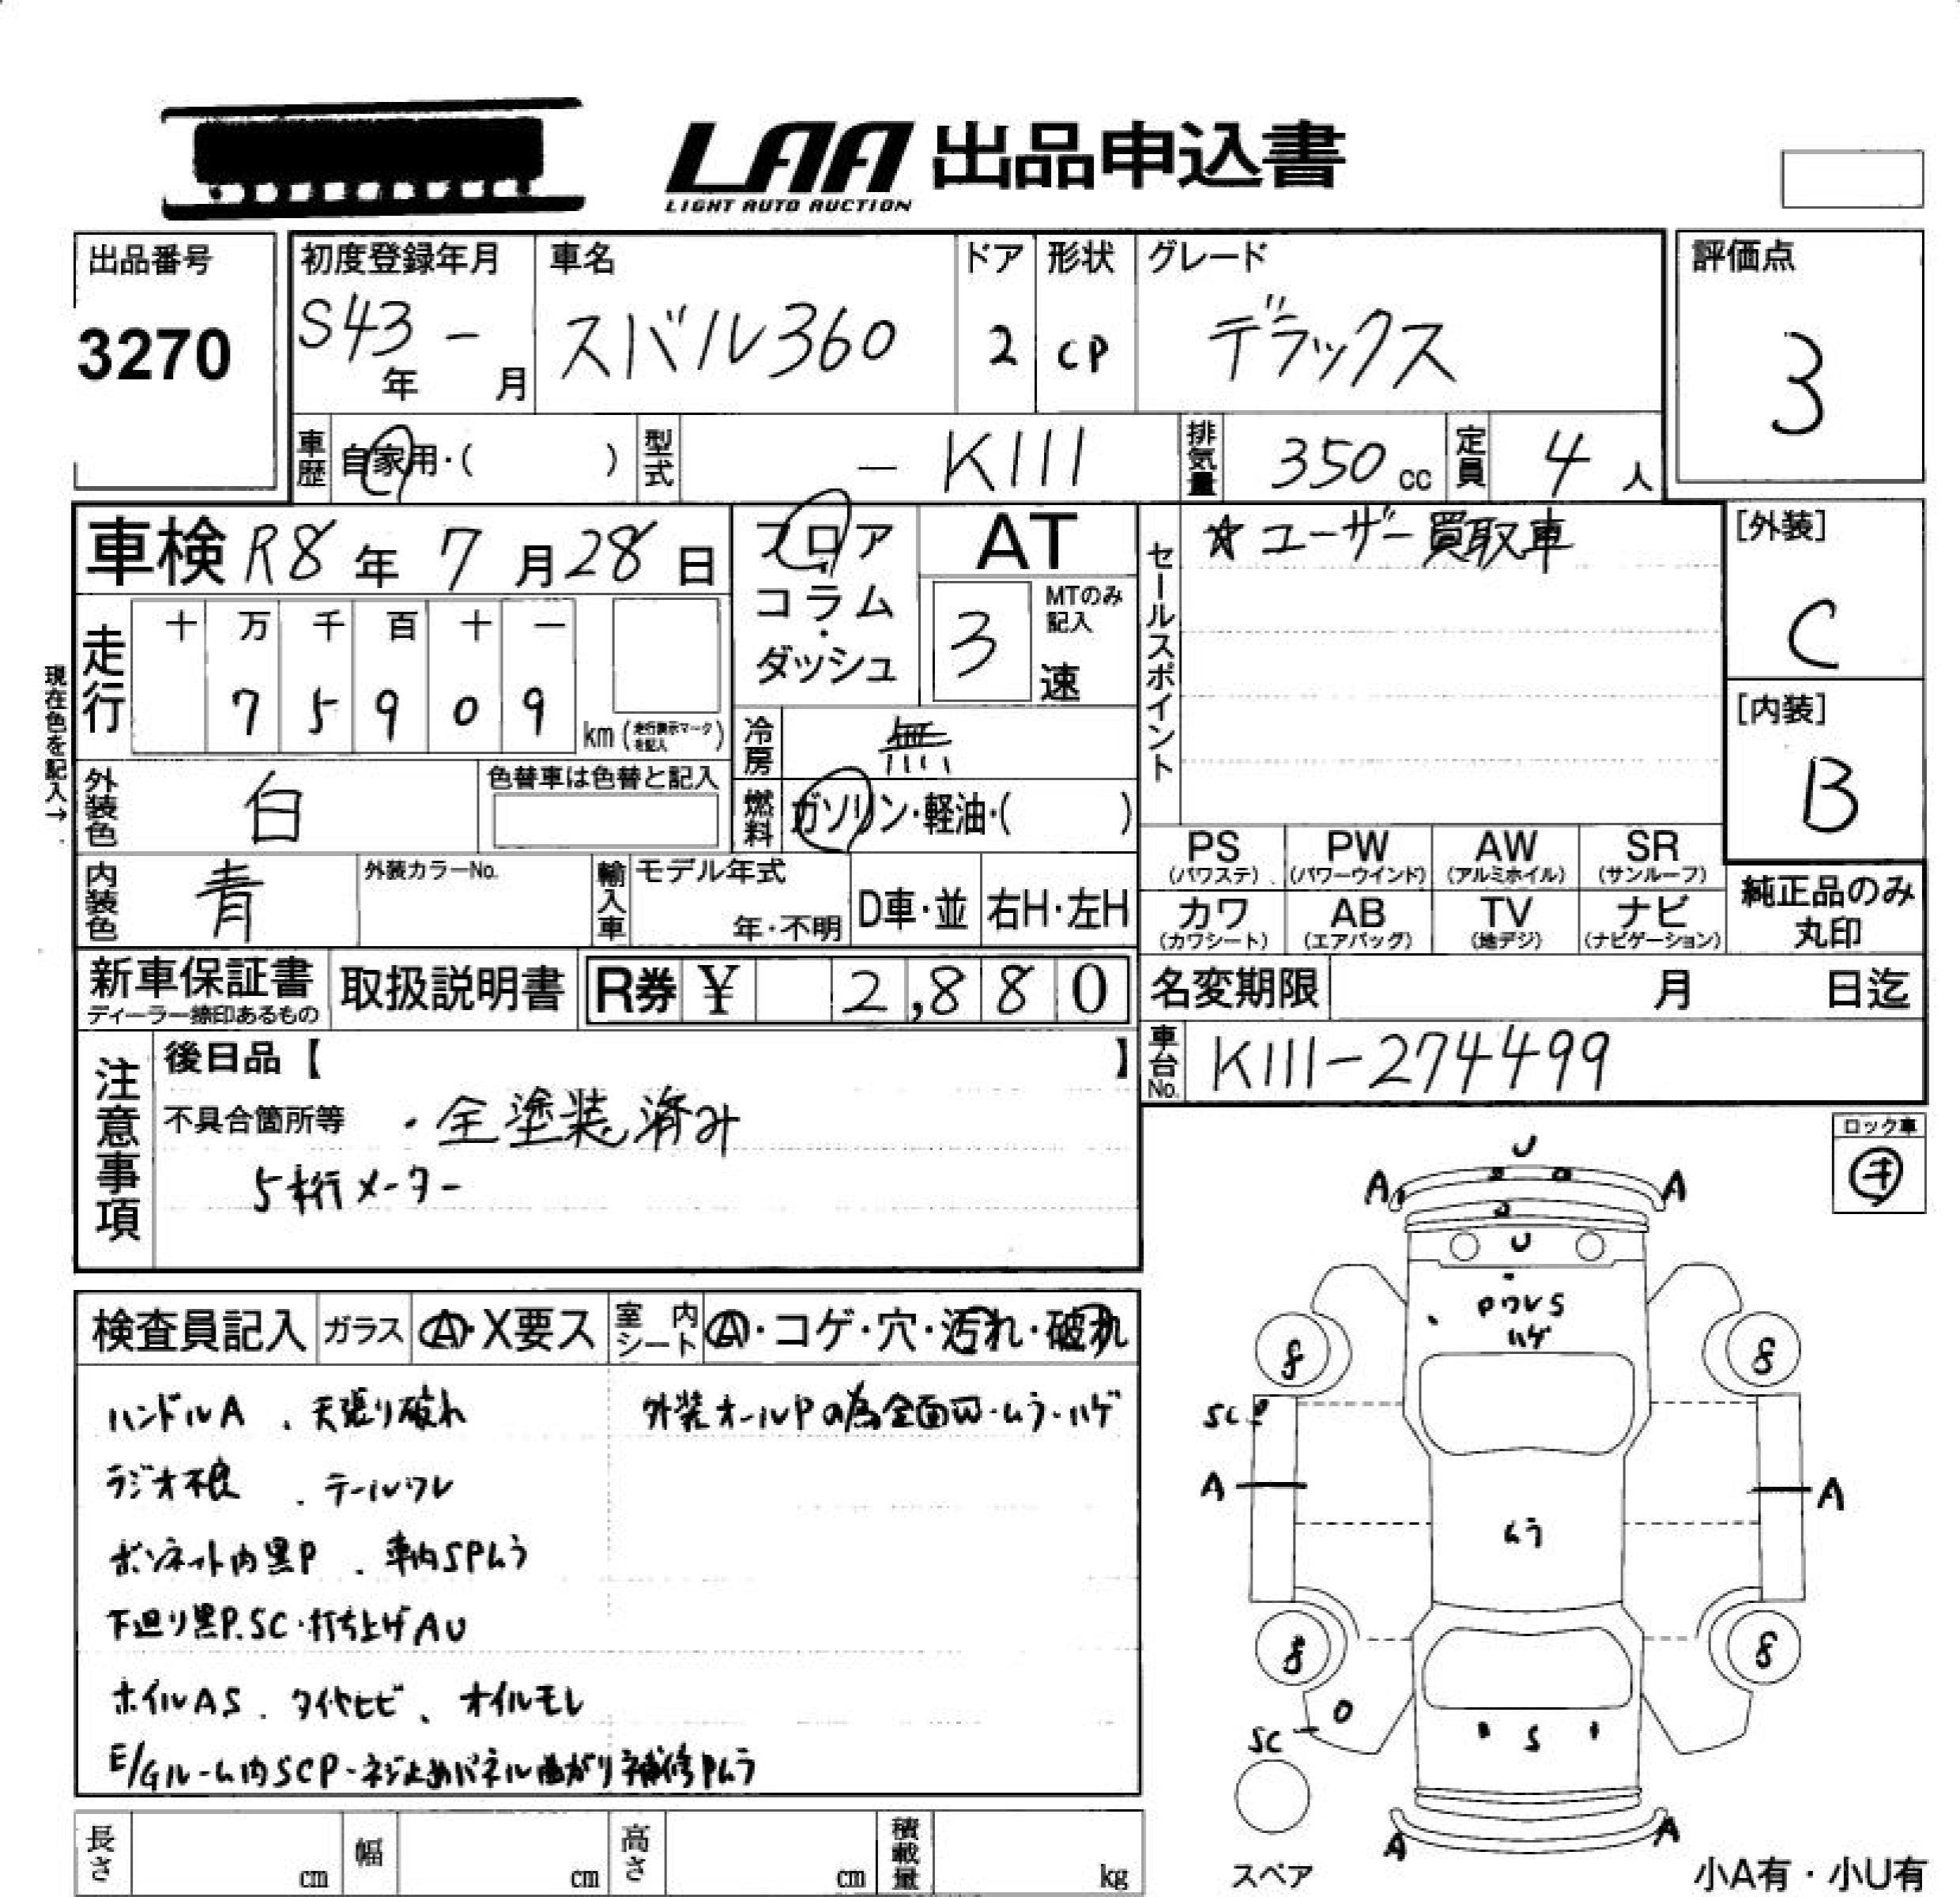 LAA 出品申込書
LIGHT AUTO AUCTION
出品番号
3270
初度登録年月
S43 - 年 月
車名
スバル360
ドア
2
形状
CP
グレード
デラックス
評価点
3
車歴 自家用・( )
型式 - K111
排気量 350 cc
定員 4 人
車検 R8年 7月28日
フロア
コラム・
ダッシュ
AT
3
MTのみ記入
速
セールスポイント
☆ユーザー買取車
[外装]
C
[内装]
B
現在色を記入→
走行
十 万 千 百 十 一
7 5 9 0 9
km (走行表示マークを記入)
冷房 無
燃料 ガソリン・軽油・( )
外装色 白
色替車は色替と記入
内装色 青
外装カラーNo.
輸入車
モデル年式
年・不明
D車・並
右H・左H
PS (パワステ)
PW (パワーウインド)
AW (アルミホイル)
SR (サンルーフ)
カワ (カワシート)
AB (エアバッグ)
TV (地デジ)
ナビ (ナビゲーション)
純正品のみ
丸印
新車保証書
ディーラー捺印あるもの
取扱説明書
R券 ¥ 2,880
名変期限 月 日迄
車台No. K111-274499
注意事項
後日品【 】
不具合箇所等 ・全塗装済み
5桁メーター
ロック車
キ
検査員記入
ガラス
A・X要ス
室内シート
A・コゲ・穴・汚れ・破れ
ハンドルA 、天張り破れ
外装オールPの為全面W・ムラ・ハゲ
ラジオ不良 、テールワレ
ボンネット内黒P 、車内SPムラ
下廻り黒P.SC・打ち上げAU
ホイルAS 、タイヤヒビ、オイルモレ
E/Gルーム内SCP・ネジ止めパネル曲がり補修Pムラ
U
A A
U
PワレS
ハゲ
8 8
SC
A A
ムラ
8 8
SC
S
A A
スペア
小A有・小U有
長さ cm
幅 cm
高さ cm
積載量 kg